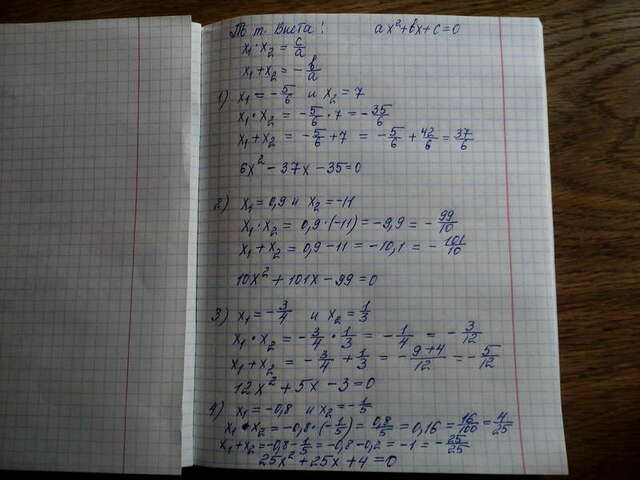 По т. Виета: ax²+bx+c=0
x₁·x₂ = c/a
x₁+x₂ = -b/a
1) x₁ = -5/6 и x₂ = 7
x₁·x₂ = -5/6·7 = -35/6
x₁+x₂ = -5/6+7 = -5/6 + 42/6 = 37/6
6x²-37x-35=0
2) x₁=0,9 и x₂=-11
x₁·x₂ = 0,9·(-11) = -9,9 = -99/10
x₁+x₂ = 0,9-11 = -10,1 = -101/10
10x²+101x-99=0
3) x₁=-3/4 и x₂=1/3
x₁·x₂ = -3/4·1/3 = -1/4 = -3/12
x₁+x₂ = -3/4+1/3 = -9+4/12 = -5/12
12x²+5x-3=0
4) x₁=-0,8 и x₂=-1/5
x₁·x₂ = -0,8·(-1/5) = 0,8/5 = 0,16 = 16/100 = 4/25
x₁+x₂ = -0,8-1/5 = -0,8-0,2 = -1 = -25/25
25x²+25x+4=0